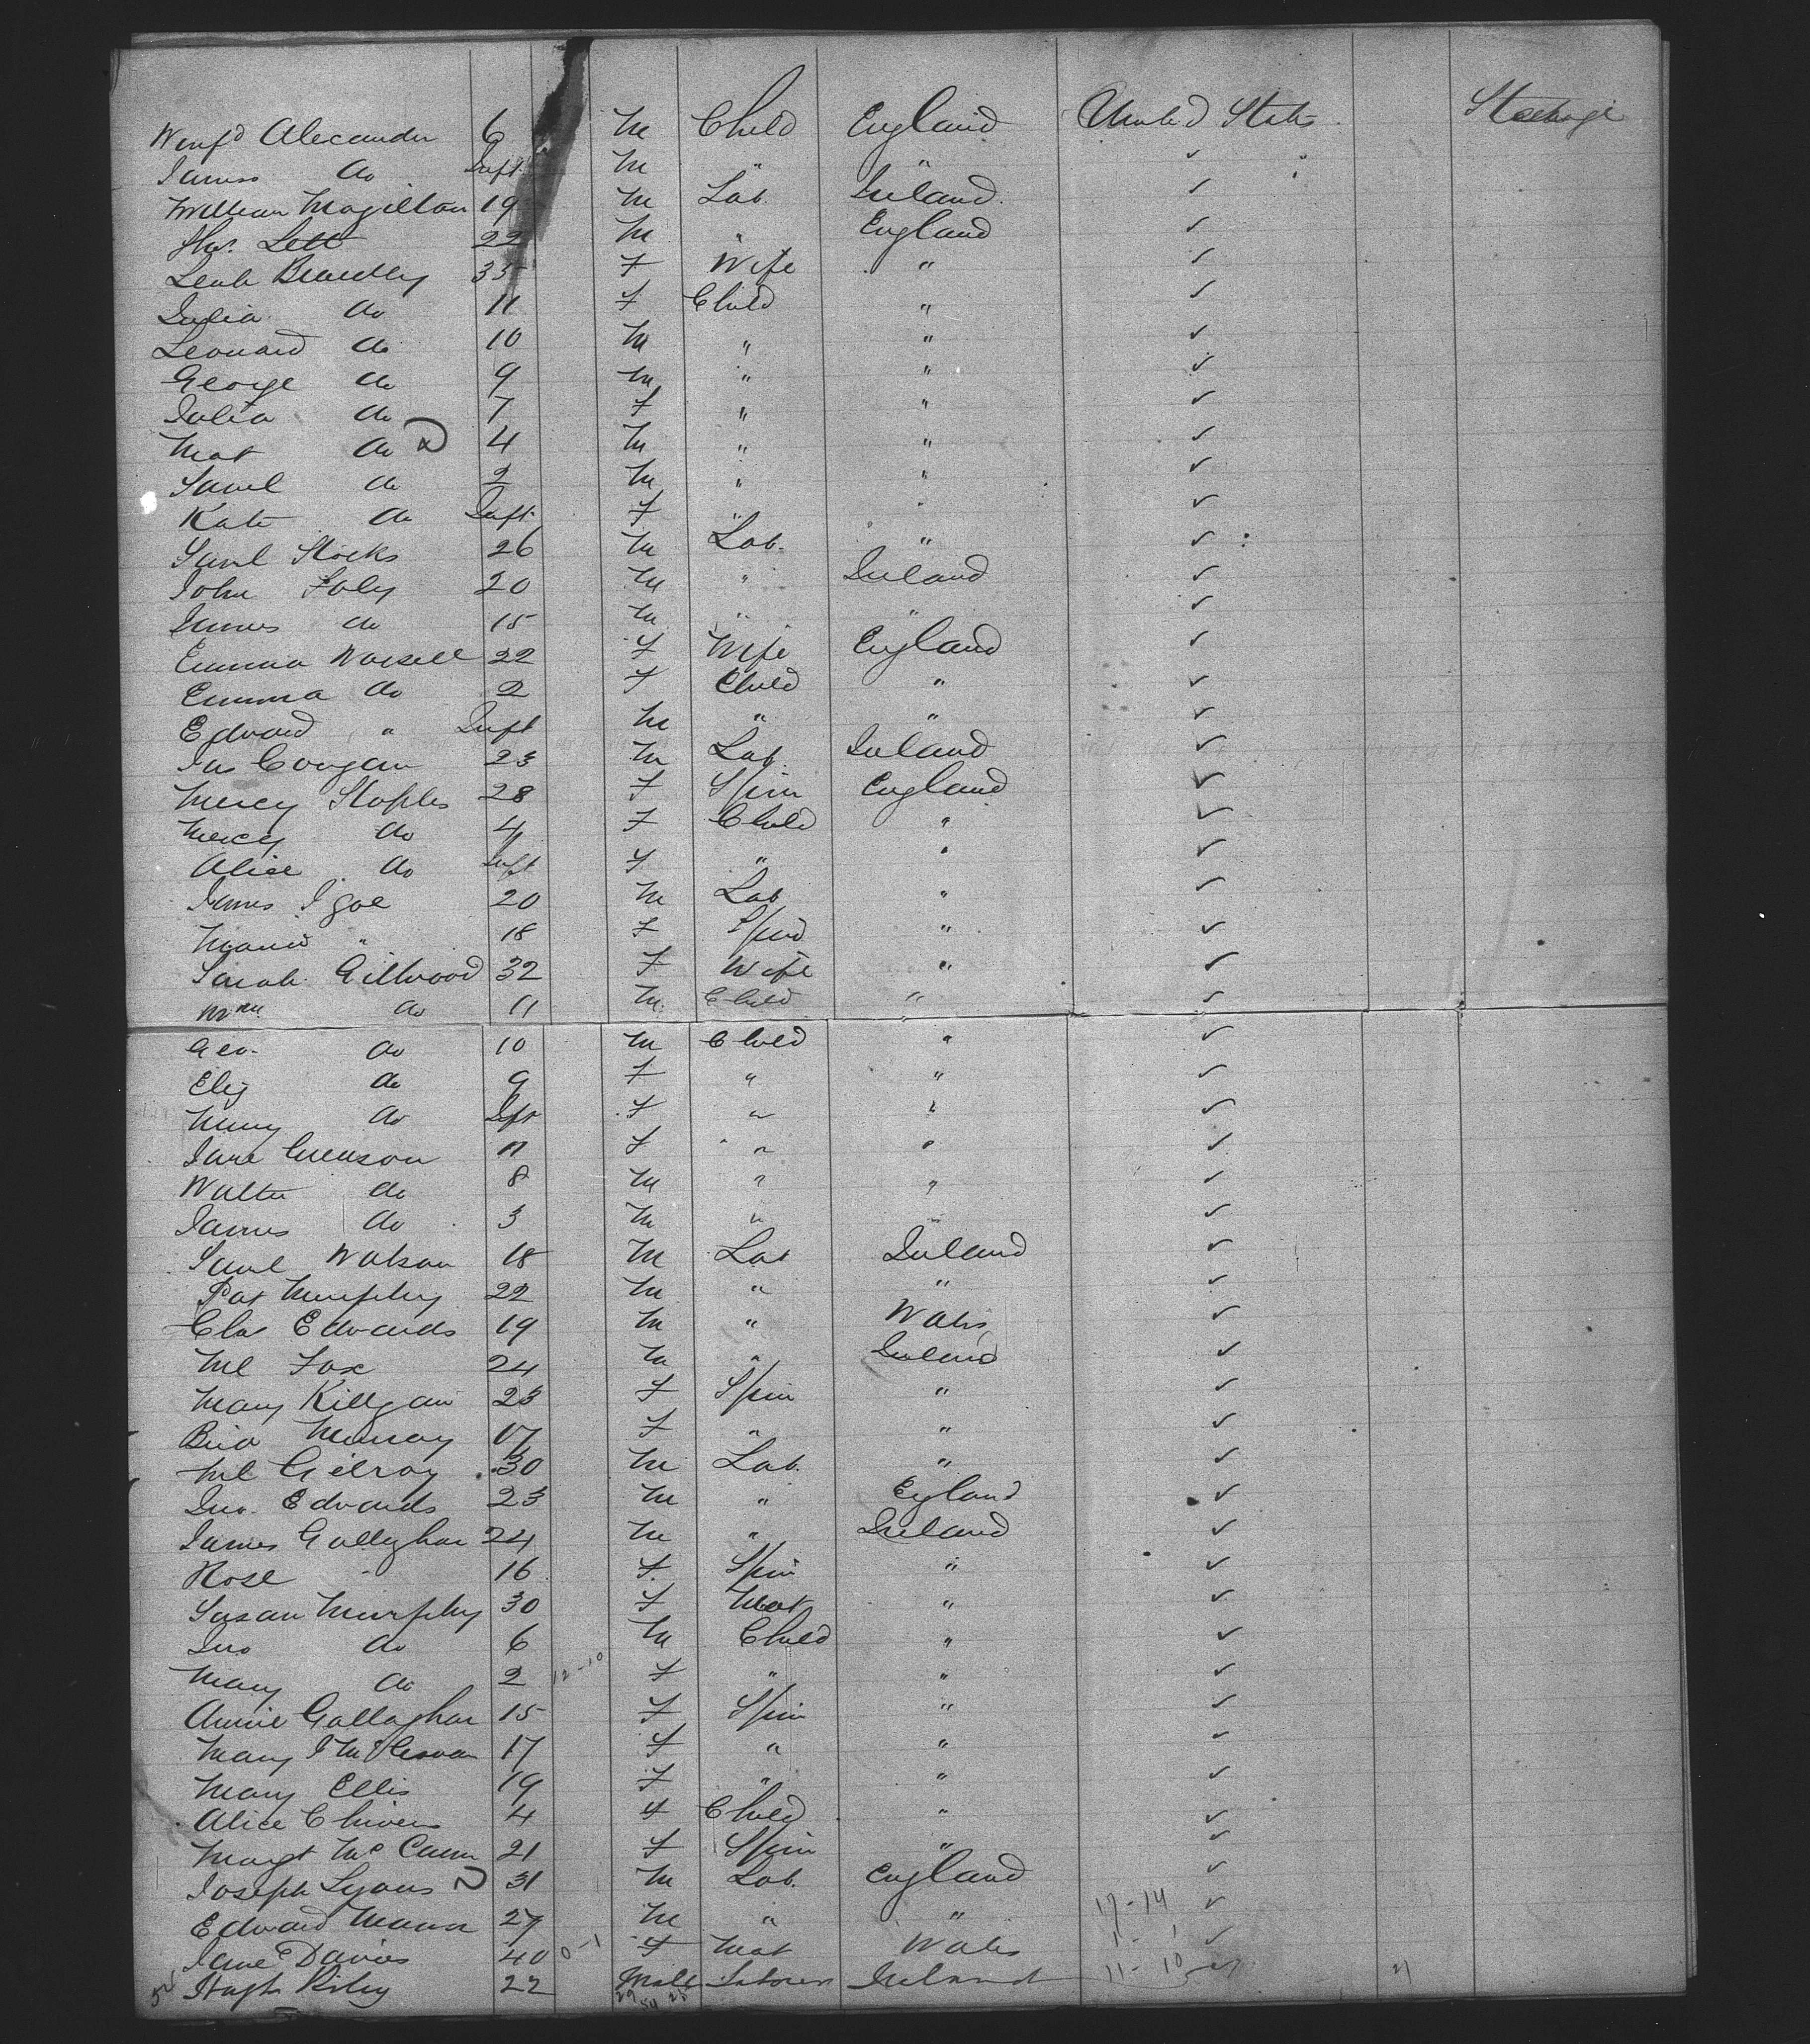 Winfd Alexander 6 M Child England United States Steerage
James do Inft M " " ✓
William Magilton 19 M Lab. Ireland ✓
Thos. Lett 22 M " England ✓
Leah Brardley 35 F Wife " ✓
Julia do 11 F Child " ✓
Leonard do 10 M " " ✓
George do 9 M " " ✓
Julia do 7 F " " ✓
Mat do 4 M " " ✓
Saml do 2 M " " ✓
Kate do Inft F " " ✓
Saml Stocks 26 M Lab. " ✓
John Foley 20 M " Ireland ✓
James do 15 M " " ✓
Emma Worsell 22 F Wife England ✓
Emma do 2 F Child " ✓
Edward " Inft M " " ✓
Jas Coogan 23 M Lab. Ireland ✓
Mercy Staples 28 F Spin England ✓
Mercy do 4 F Child " ✓
Alice do Inft F " " ✓
James Igoe 20 M Lab " ✓
Maria " 18 F Spin " ✓
Sarah Gillwood 32 F Wife " ✓
Wm do 11 M Child " ✓
Geo. do 10 M Child " ✓
Eliz do 9 F " " ✓
Mary do Inft F " " ✓
Jane 11 F " " ✓
Walter do 8 M " " ✓
James do 3 M " " ✓
Saml Watson 18 M Lab Ireland ✓
Pat Murphy 22 M " " ✓
Chas Edwards 19 M " Wales ✓
Ml Fox 24 M " Ireland ✓
Mary Killgan 23 F Spin " ✓
Bid Murray 17 F " " ✓
Ml Gilroy 30 M Lab. " ✓
Jno. Edwards 23 M " England ✓
James Gallyhar 24 M " Ireland ✓
Rose " 16 F Spin " ✓
Susan Murphy 30 F Mat " ✓
Jno do 6 M Child " ✓
Mary do 2 12-10 F " " ✓
Annie Gallaghar 15 F Spin " ✓
Mary J 17 F " " ✓
Mary Ellis 19 F " " ✓
Alice Chivers 4 F Child " ✓
Margt McCann 21 F Spin " ✓
Joseph Lyons 31 M Lab. England ✓
Edward Mann 27 M " " 17-14 ✓
Jane Davies 40 0-1 F Mat Wales 1-1 ✓
Hugh Riley 22 Male Laborer Ireland 11-10